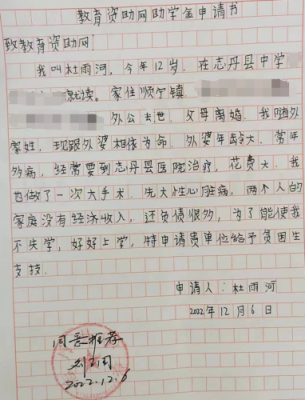 教育资助网助学金申请书
致教育资助网:
我叫杜雨河,今年12岁,在志丹县中学
就读。家住顺宁镇
外公去世,父母离婚,我随外
家姓,现跟外婆相依为命,外婆年龄大,常年
多病,经常要到志丹县医院治疗,花费大,我
也做了一次大手术,先天性心脏病,两个人的
家庭没有经济收入,还负债很多,为了能使我
不失学,好好上学,特申请贵单位给予贫困生
支持。
申请人:杜雨河
2022年12月6日
同意推荐
2022.12.6